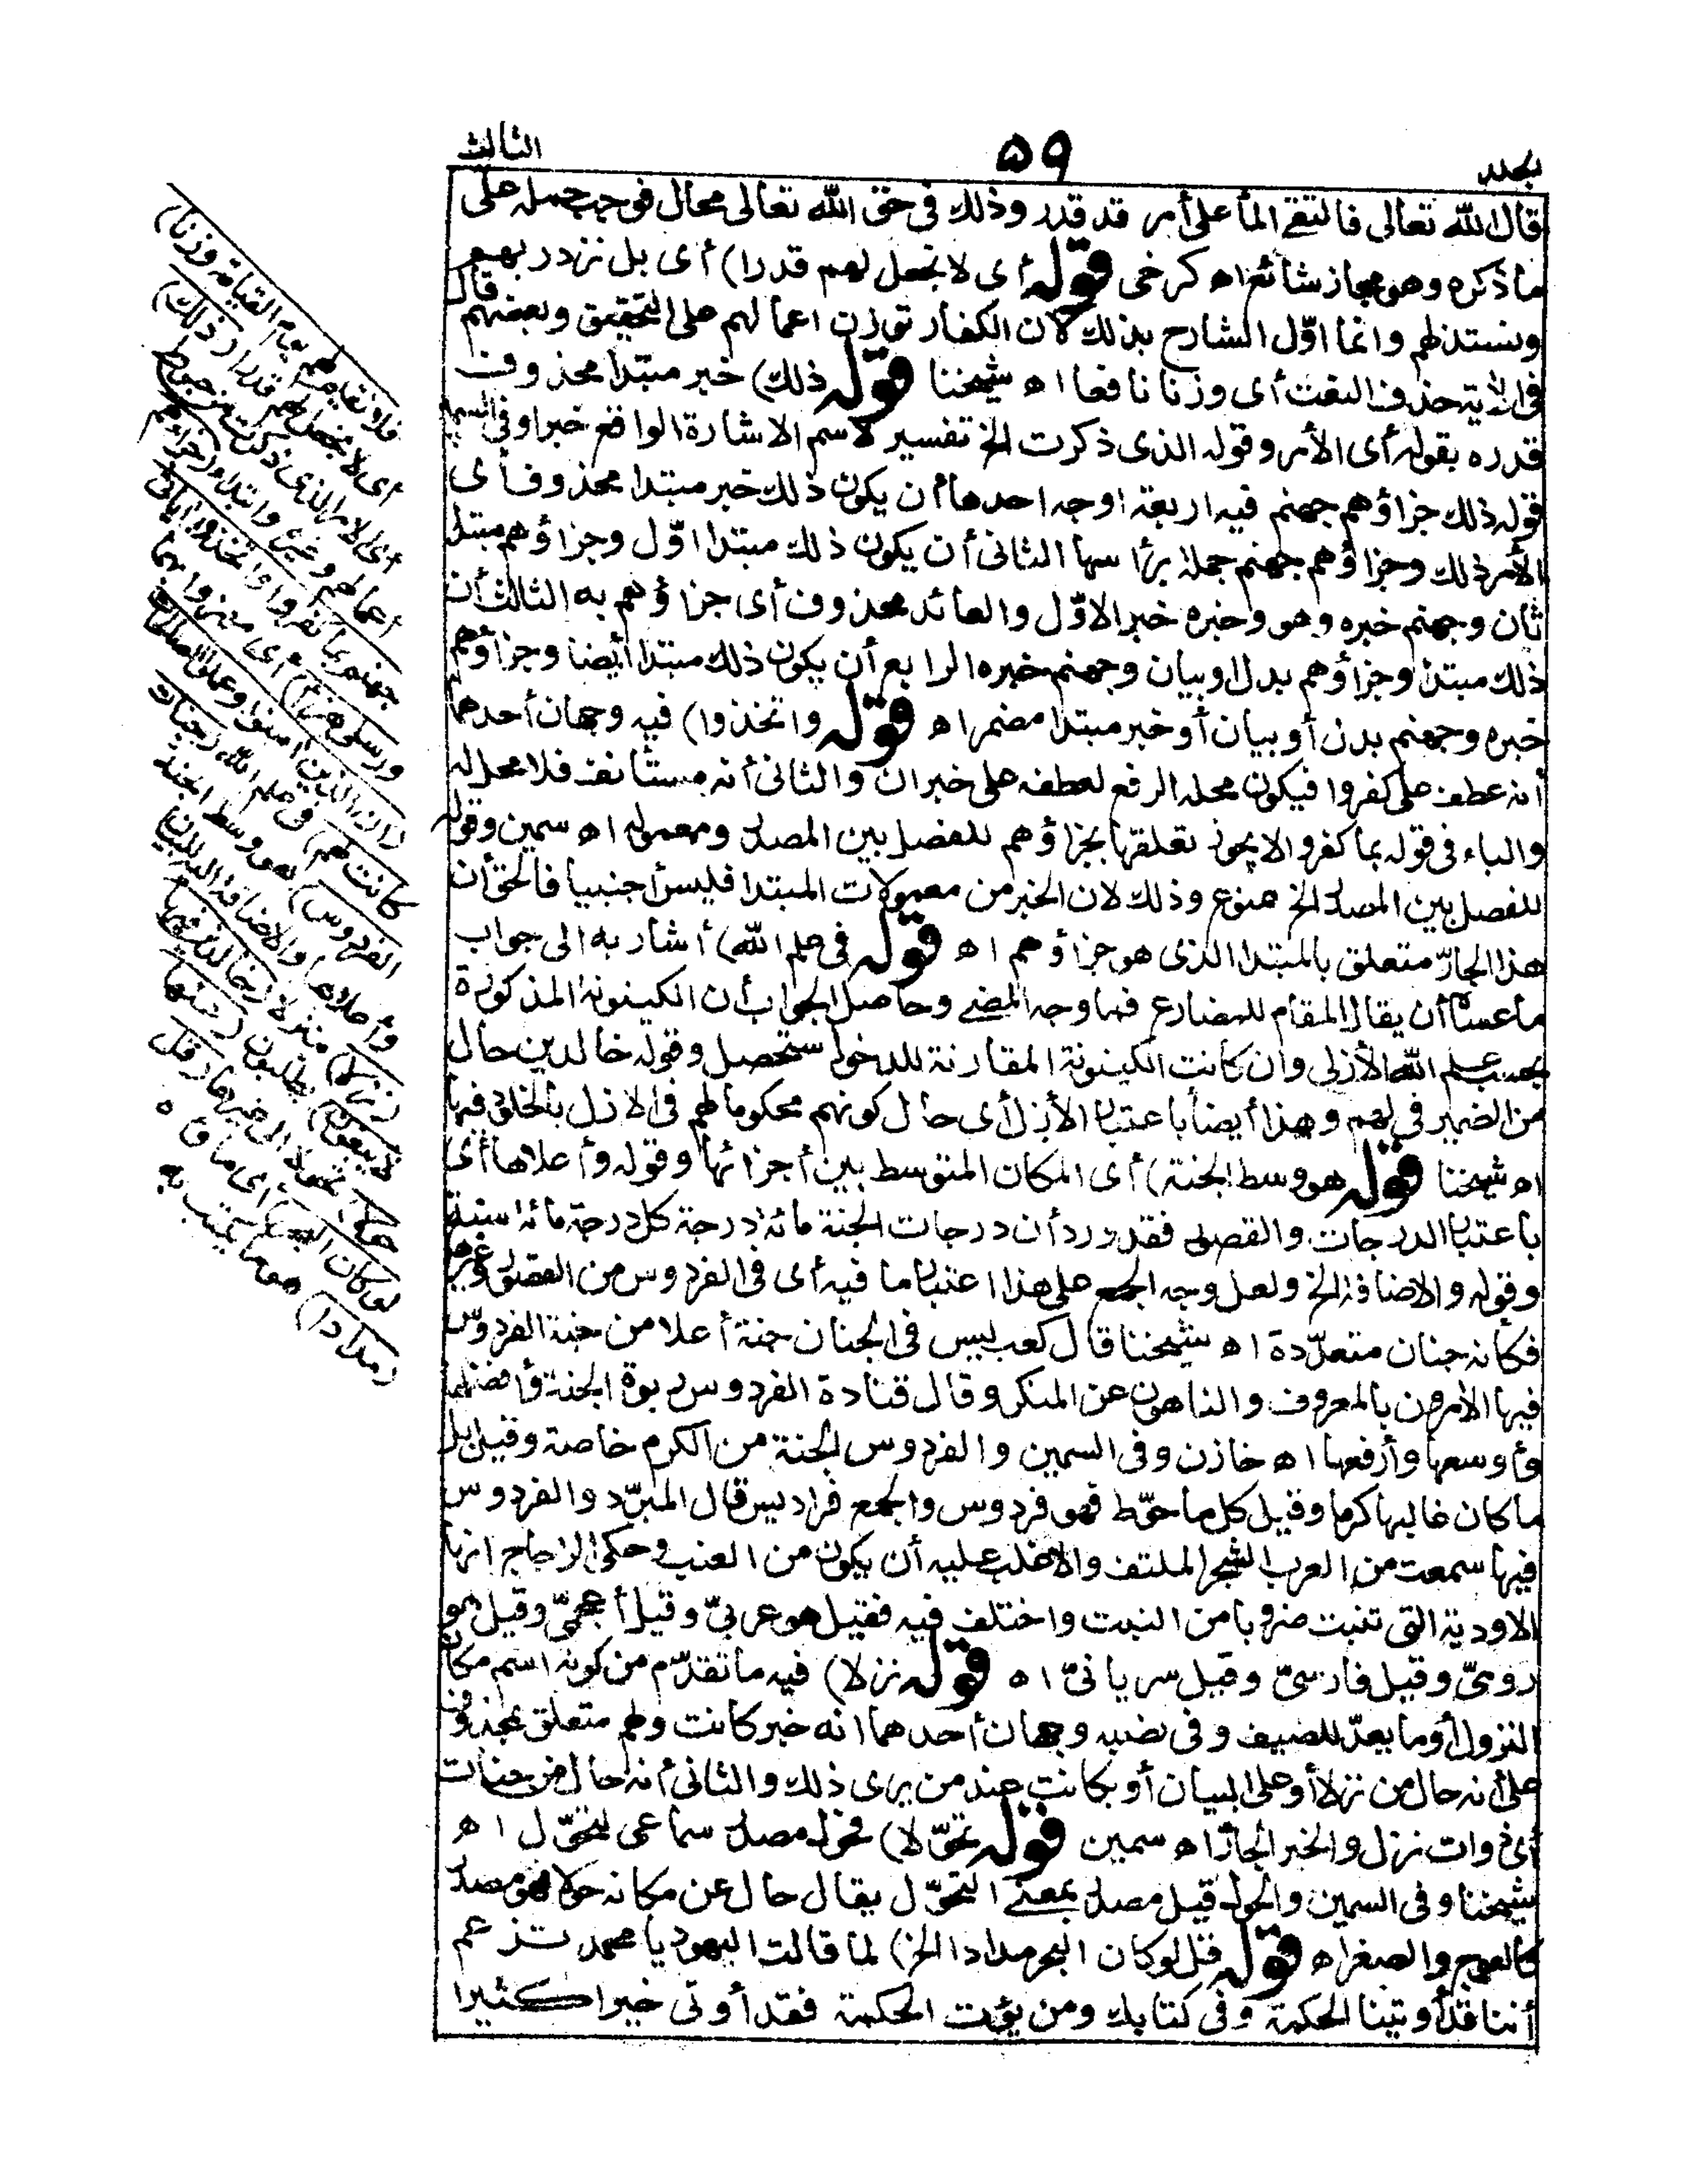 المجلد
٥٩
الثالث
قال الله تعالى فالتقى الماء على أمر قد قدر وذلك فى حق الله تعالى محال فوجب حمله على
ما ذكره وهو مجاز شائع اه كرخى قوله أى لا نجعل لهم قدرا) أى بل نزدر بهم
ونستذلهم وانما اوّل الشارح بذلك لان الكفار توزن اعمالهم على التحقيق وبعضهم قال
فى الآية حذف النعت أى وزنا نافعا اه شيخنا قوله ذلك) خبر مبتدا محذوف
قدره بقوله أى الأمر وقوله الذى ذكرت الخ تفسير لاسم الاشارة الواقع خبرا وفى السمين
قوله ذلك جزاؤهم جهنم فيه اربعة اوجه احدها أن يكون ذلك خبر مبتدا محذوف أى
الأمر ذلك وجزاؤهم جهنم جملة برأسها الثانى أن يكون ذلك مبتدا اوّل وجزاؤهم مبتدا
ثان وجهنم خبره وهو وخبره خبر الاوّل والعائد محذوف أى جزاؤهم به الثالث أن
ذلك مبتدأ وجزاؤهم بدل او بيان وجهنم خبره الرابع أن يكون ذلك مبتدا أيضا وجزاؤهم
خبره وجهنم بدل أو بيان أو خبر مبتدا مضمر اه قوله واتخذوا) فيه وجهان أحدهما
أنه عطف على كفروا فيكون محله الرفع لعطفه على خبر ان والثانى أنه مستأنف فلا محل له
والباء فى قوله بما كفروا لا يجوز تعلقها بجزاؤهم للفصل بين المصدر ومعموله اه سمين وقوله
للفصل بين المصدر الخ ممنوع وذلك لان الخبر من معمولات المبتدا فليس أجنبيا فالحق أن
هذا الجارّ متعلق بالمبتدا الذى هو جزاؤهم اه قوله فى علم الله) أشار به الى جواب
ما عساه أن يقال المقام للمضارع فما وجه المضى وحاصل الجواب أن الكينونة المذكورة
بحسب علم الله الأزلى وان كانت الكينونة المقارنة للدخول ستحصل وقوله خالدين حال
من الضمير فى لهم وهذا أيضا باعتبار الأزل أى حال كونهم محكوما لهم فى الازل بالخلود فيها
اه شيخنا قوله هو وسط الجنة) أى المكان المتوسط بين أجزائها وقوله وأعلاها أى
باعتبار الدرجات والقصور فقد ورد أن درجات الجنة مائة درجة كل درجة مائة سنة
وقوله والاضافة الخ ولعل وجه الجمع على هذا اعتبار ما فيه أى فى الفردوس من القصور وغيرها
فكأنه جنان متعدّدة اه شيخنا قال كعب ليس فى الجنان جنة أعلا من جنة الفردوس
فيها الآمرون بالمعروف والناهون عن المنكر وقال قتادة الفردوس ربوة الجنة وأفضلها
وأوسعها وأرفعها اه خازن وفى السمين والفردوس الجنة من الكرم خاصة وقيل بل
ما كان غالبها كرما وقيل كل ما حوّط فهو فردوس والجمع فراديس قال المبرّد والفردوس
فيها سمعت من العرب الشجر الملتف والاغلب عليه أن يكون من العنب وحكى الزجاج انها
الاودية التى تنبت ضروبا من النبت واختلف فيه فقيل هو عربىّ وقيل أعجمىّ وقيل هو
رومىّ وقيل فارسىّ وقيل سريانىّ اه قوله نزلا) فيه ما تقدّم من كونه اسم مكان
النزول أو ما يعدّ للضيف وفى نصبه وجهان أحدهما انه خبر كانت ولهم متعلق بمحذوف
على أنه حال من نزلا أو على البيان أو بكانت عند من يرى ذلك والثانى أنه حال من جنات
أى ذوات نزل والخبر الجارّ اه سمين قوله تحوّلا) فحول مصدر سماعى لتحوّل اه
شيخنا وفى السمين والحول قيل مصدر بمعنى التحوّل يقال حال عن مكانه حولا فهو مصدر
كالعوج والصغر اه قوله قل لو كان البحر مدادا الخ) لما قالت اليهود يا محمد تزعم
أننا قد أوتينا الحكمة وفى كتابك ومن يؤت الحكمة فقد أوتى خيرا كثيرا
فلا نقيم لهم يوم القيامة وزنا)
أى لا نجعل لهم قدرا (ذلك)
أى الامر الذى ذكرت من حبوط
أعمالهم وغيره وابتدأ (جزاؤهم
جهنم بما كفروا واتخذوا آياتى
ورسلى هزؤا) أى مهزوا بهما
(ان الذين آمنوا وعملوا الصالحات
كانت لهم) فى علم الله (جنات
الفردوس) هو وسط الجنة
وأعلاها والاضافة اليه للبيان
(نزلا) منزلا (خالدين فيها
لا يبغون) يطلبون (عنها
حولا) تحولا الى غيرها (قل
لو كان البحر) أى ماؤه
(مدادا) هو ما يكتب به